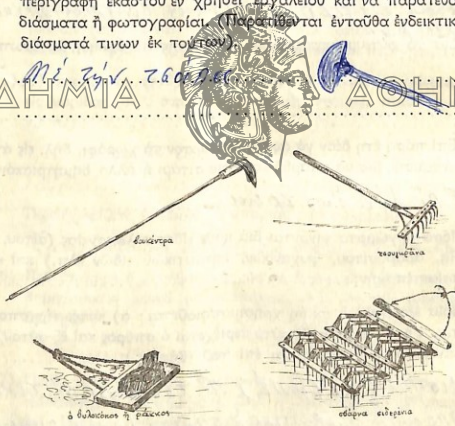 περιγραφὴ ἑκάστου ἐν χρήσει ἐργαλείου καὶ νὰ παρατεθ
διάσματα ἢ φωτογραφίαι. (Παρατίθενται ἐνταῦθα ἐνδεικτικ
διάσματά τινων ἐκ τούτων)
Μὲ τὴν
ΔΗΜΙΑ ΑΘΗΝ
βουκέντρα
τσουγκράνα
ὁ βωλοκόπος ἢ ράκκος
σβάρνα σιδερένια